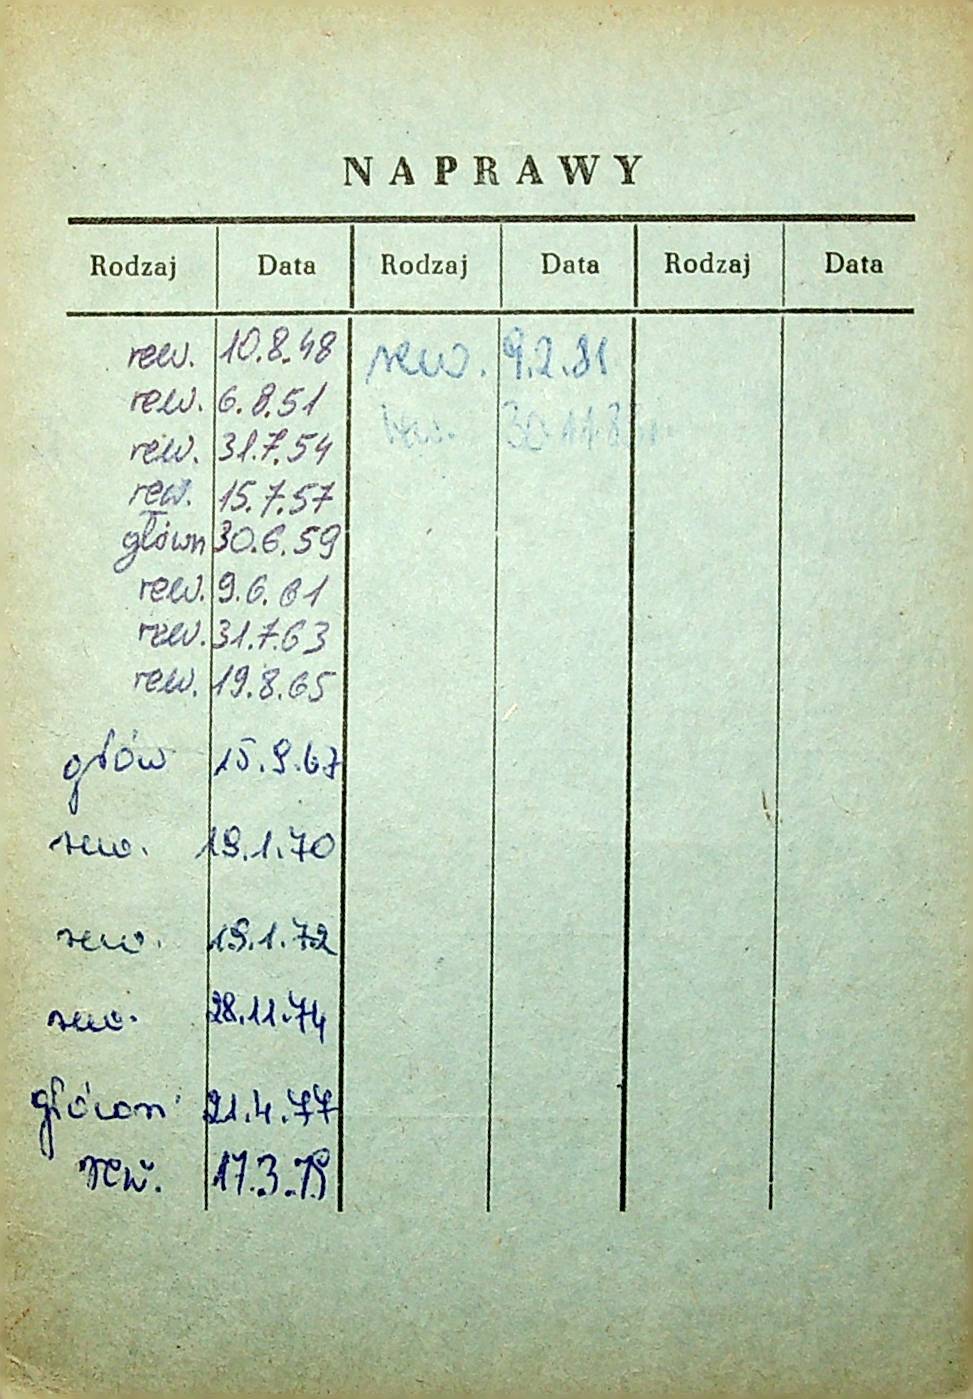 NAPRAWY
Rodzaj Data Rodzaj Data Rodzaj Data
rew. 10.8.48 rew. 9.2.81
rew. 6.8.51 rew.
rew. 31.7.54
rew. 15.7.57
główn 30.6.59
rew. 9.6.61
rew. 31.7.63
rew. 19.8.65
głów 15.9.67
rew. 19.1.70
rew. 19.1.72
rew. 28.11.74
główn 21.4.77
rew. 17.3.79